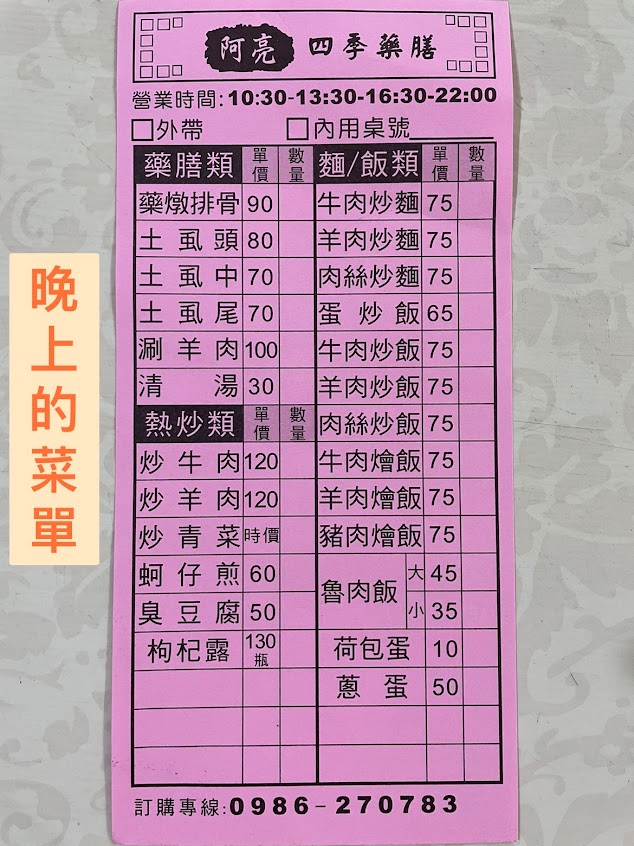 阿亮 四季藥膳
營業時間:10:30-13:30-16:30-22:00
□外帶 □內用桌號
藥膳類 單價 數量 麵/飯類 單價 數量
藥燉排骨 90 牛肉炒麵 75
土虱頭 80 羊肉炒麵 75
土虱中 70 肉絲炒麵 75
土虱尾 70 蛋炒飯 65
涮羊肉 100 牛肉炒飯 75
清湯 30 羊肉炒飯 75
熱炒類 單價 數量 肉絲炒飯 75
炒牛肉 120 牛肉燴飯 75
炒羊肉 120 羊肉燴飯 75
炒青菜 時價 豬肉燴飯 75
蚵仔煎 60 魯肉飯 大 45
臭豆腐 50 小 35
枸杞露 130瓶 荷包蛋 10
蔥蛋 50
訂購專線:0986-270783
晚上的菜單